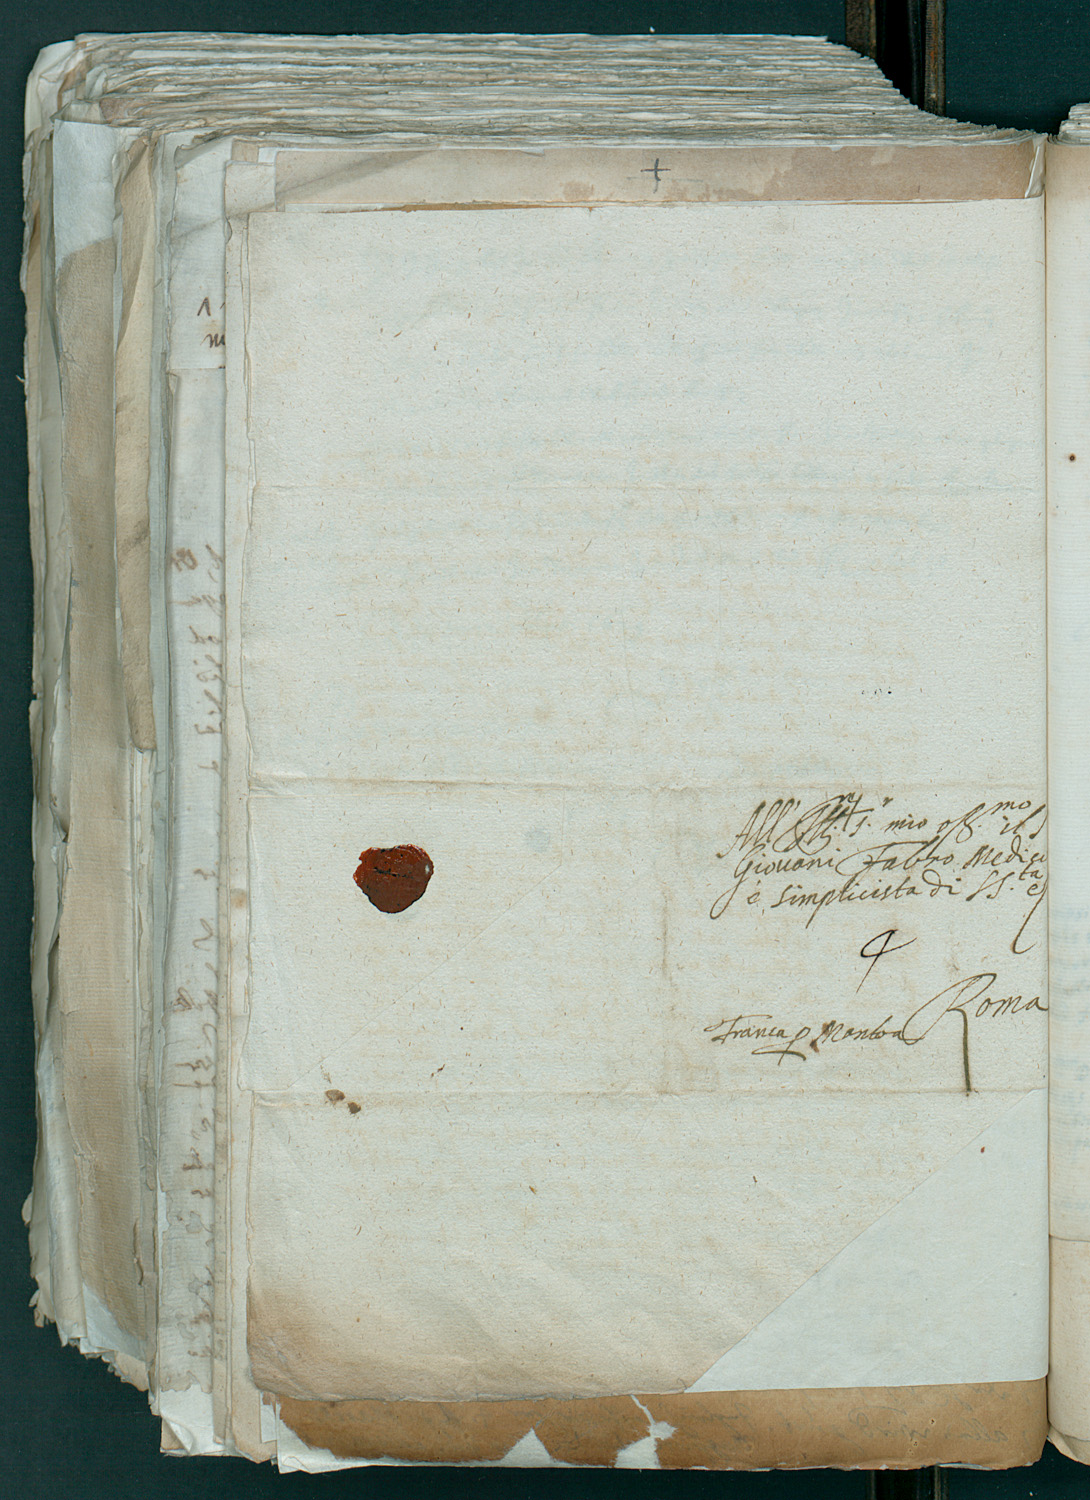 All' Ill. S.r mio oss.mo il S
Giovani Fabro Medico
è Simplicista di SS.ta è
Roma
Franca p Mantoa